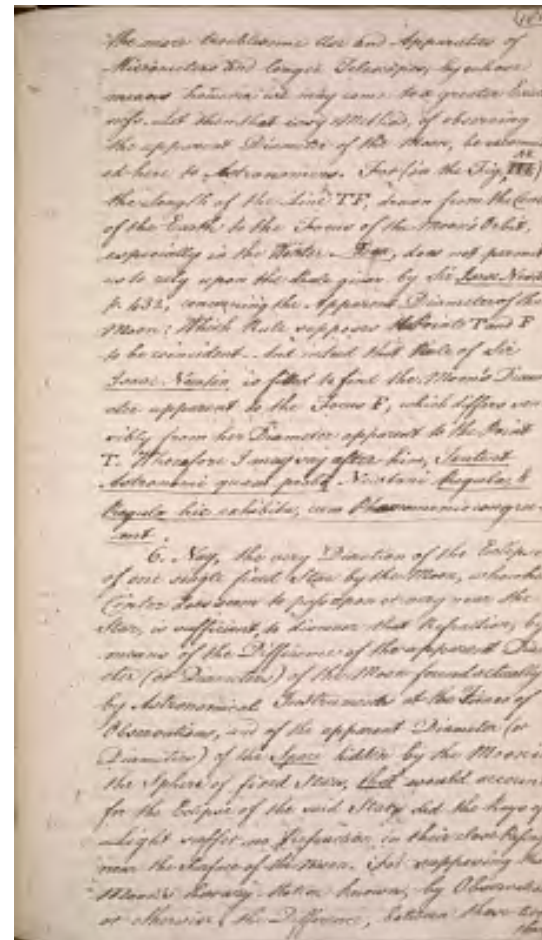 the more troublesome Use and Apparatus of
Micrometers and longer Telescopes, by whose
means however we may come to a greater
Let then that easy Method, of observing
the apparent Diameter of the Moon, be
ed here to Astronomers. For (in the Fig.
the Length of the Line TF, drawn from the
of the Earth to the Focus of the Moon's Orbit,
especially in the Winter Time, does not permit
us to rely upon the Rule given by Sir Isaac
p. 432, concerning the Apparent Diameter of the
Moon: Which Rule supposes the Points T and F
to be coincident. And indeed that Rule of Sir
Isaac Newton is fitted to find the Moon's
apparent to the Focus F, which differs
sibly from her Diameter apparent to the Point
T. Therefore I may say after him,
Astronomi quam Newtoni Regula, &
Regula hic exhibita, cum Phaenomenis congru
ant.
6. Nay, the very Duration of the Eclipse
of one single fixed Star by the Moon, whose
Center does seem to pass upon or very near the
Star, is sufficient, to discover that Refraction, by
means of the Difference of the apparent
ter (or Diameters) of the Moon found actually
by Astronomical Instruments at the Times of
Observations, and of the apparent Diameter (or
Diameters) of the Space hidden by the Moon in
the Sphere of fixed Stars, that would account
for the Eclipse of the said Stars, did the Rays of
Light suffer no Refraction in their close
near the Surface of the Moon. For supposing the
Moon's Horary Motion known, by
or otherwise, the Difference, between these